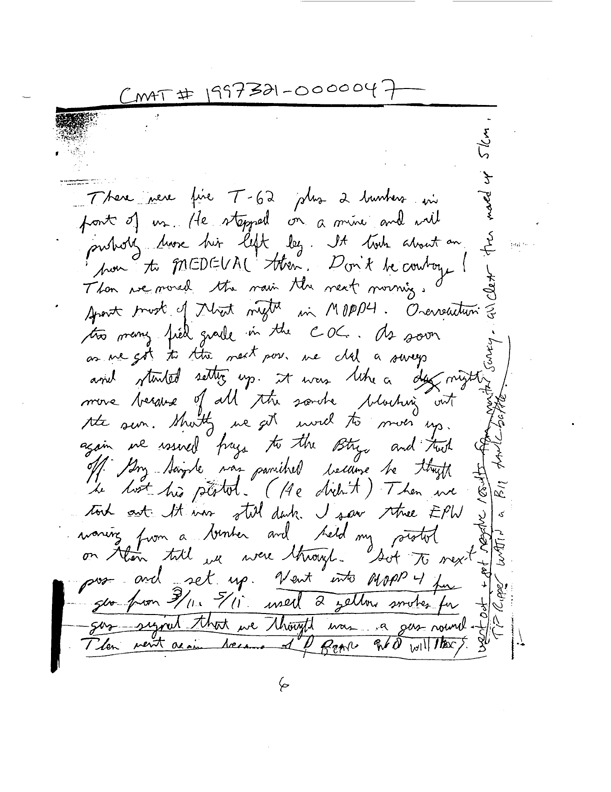 CMAT # 1997321-0000047
There were five T-62 plus 2 bunkers in
front of us. He stepped on a mine and will
probably lose his left leg. It took about an
hour to MEDEVAC them. Don't be cowboys!
Then we moved the main the next morning.
Spent most of that night in MOPP4. Overreaction
too many field grade in the COC. As soon
as we got to the next pos. we did a sweep
and started setting up. it was like a night
move because of all the smoke blocking out
the sun. Shortly we got word to move up.
again we issued frags to the Btrys and took
off. was panicked because he thought
he lost his pistol. (He didn't) Then we
took out. It was still dark. I saw three EPW
waving from a bunker and held my pistol
on them till we were through. Got to next
pos and set up. Went into MOPP 4 for
gas from 3/11. 5/11 used 2 yellow smokes for
gas signal that we thought was a gas round.
Then went again because of
went out - got negative results from survey. all clear then moved up 5 km.
TF Ripper in a tank battle.
6